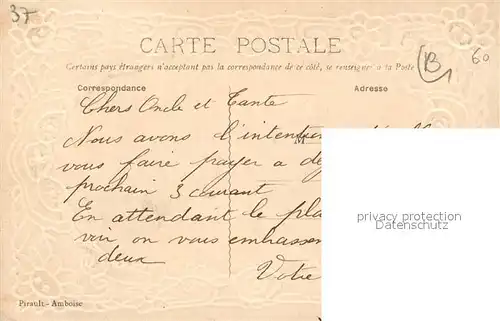 37
CARTE POSTALE
Certains pays étrangers n'acceptant pas la correspondance de ce côté, se renseigner à la Poste
B
60
Correspondance
Adresse
Chers Oncle et Tante
Nous avons l'intention
M
vous faire payer a
prochain 3 courant
En attendant le
voir on vous embrasse
deux
Votre
privacy protection
Datenschutz
Pirault - Amboise